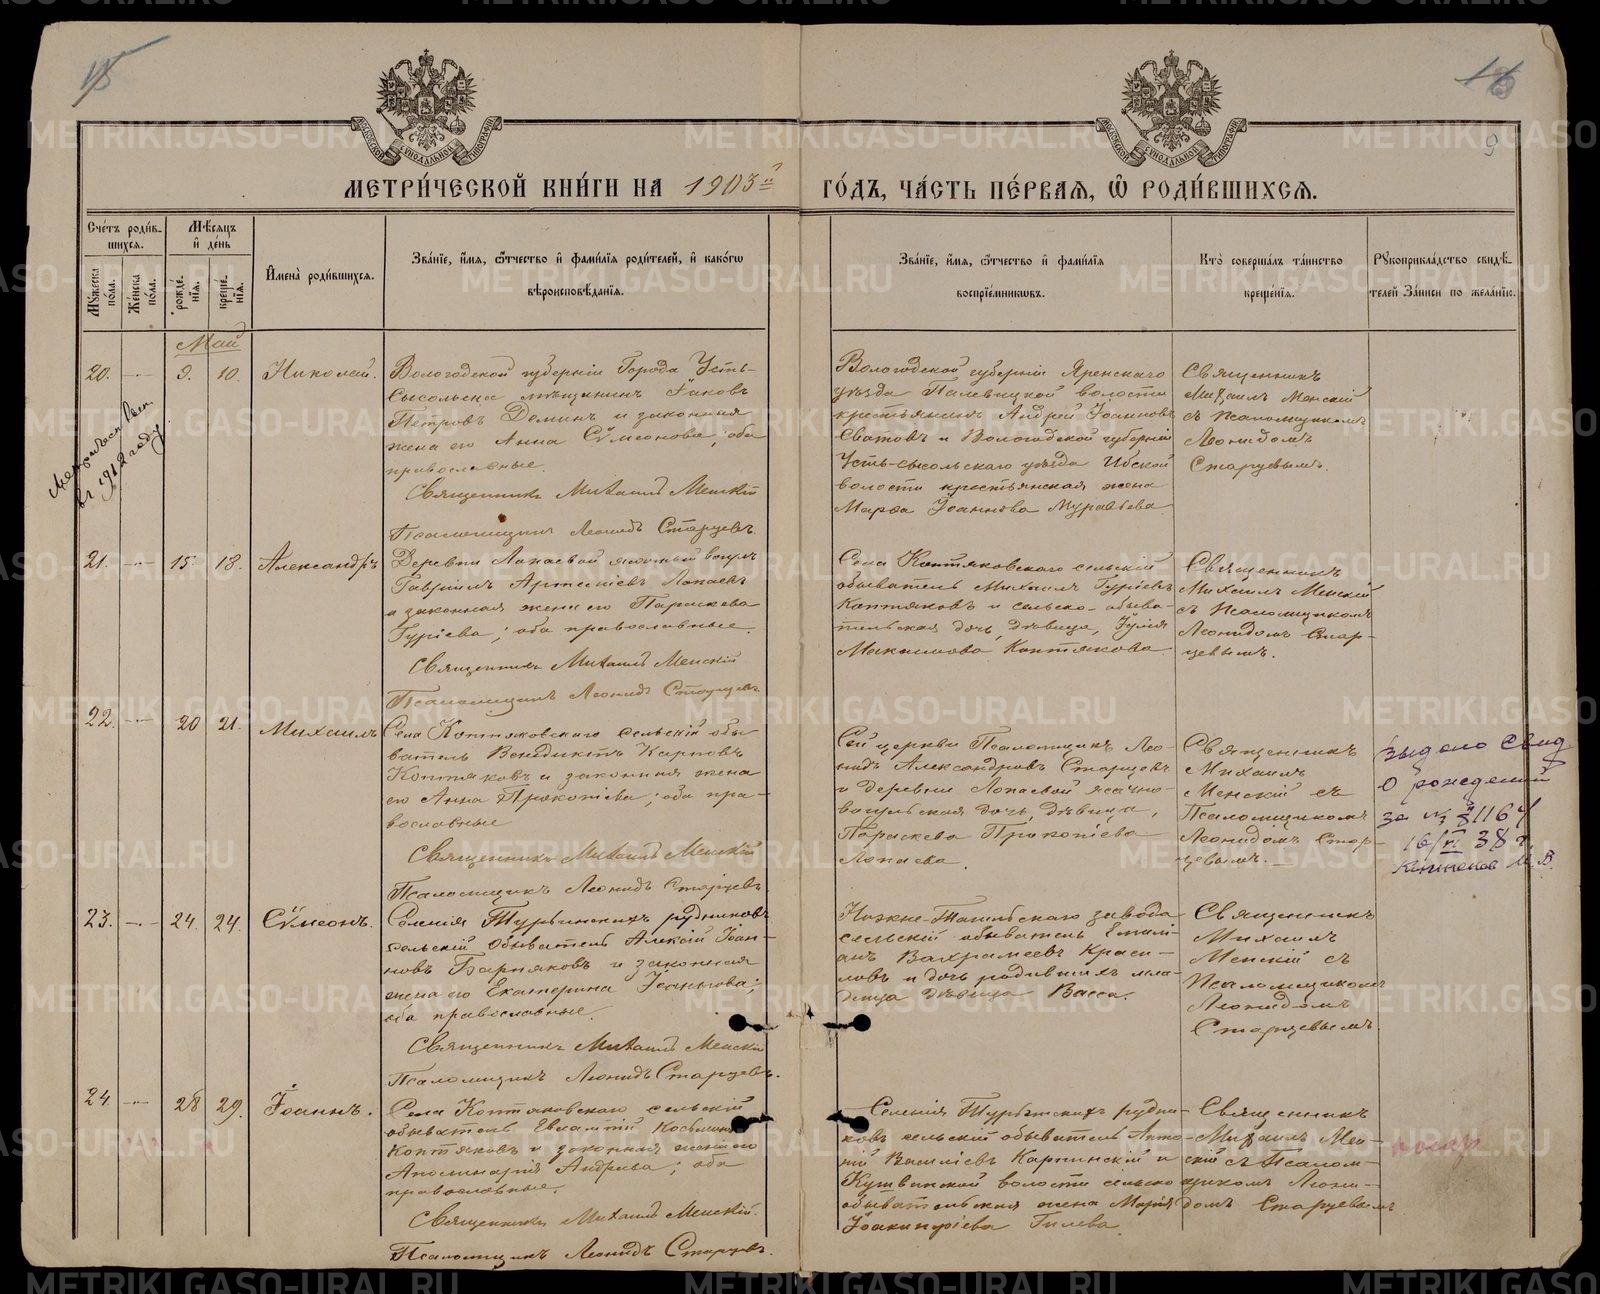 15
16
9
МОСКОВСКОЙ СУНОДАЛЬНОЙ ТИПОГРАФИИ
МОСКОВСКОЙ СУНОДАЛЬНОЙ ТИПОГРАФИИ
МЕТРИ́ЧЕСКОЙ КНИ́ГИ НА 1903й ГО́ДЪ, ЧА́СТЬ ПЕ́РВАЯ, Ѿ РОДИ́ВШИХСЯ.
Сче́тъ роди́в-
шихся.
Мꙋжеска по́ла.
Же́нска по́ла.
Мѣ́сяцъ
и҆ де́нь
рожде́-
нїѧ.
креще́-
нїѧ.
И҆мена̀ роди́вшихся.
Зва́нїе, и҆́мѧ, ѻ҆́тчество и҆ фамилїѧ роди́телей, и҆ како́гѡ
вѣроисповѣ́данїѧ.
Зва́нїе, и҆́мѧ, ѻ҆́тчество и҆ фамилїѧ
воспрїе́мникѡвъ.
Кто̀ соверша́лъ та́инство
креще́нїѧ.
Рꙋкоприкла́дство свидѣ́-
телей за́писи по жела́нїю.
Май
20.
9.
10.
Николай.
Вологодской губерніи Города Усть-
Сысольска мѣщанинъ Іаковъ
Петровъ Доминъ и законная
жена его Анна Сѵмеонова; оба
православные.
Священникъ Михаилъ Менскій
Псаломщикъ Леонидъ Старцевъ.
Вологодской губерніи Яренскаго
уѣзда Палевицкой волости
крестьянинъ Андрей Іоанновъ
Сватовъ и Вологодской губерніи
Усть-сысольскаго уѣзда Ибской
волости крестьянская жена
Марѳа Іоаннова Муравьева.
Священникъ
Михаилъ Менскій
съ псаломщикомъ
Леонидомъ
Старцевымъ.
въ 1912 году.
21.
15.
18.
Александръ
Деревни Лопаевой ясачный вогулъ
Гавріилъ Лопаевъ
и законная жена его Параскева
Гуріева; оба православные.
Священникъ Михаилъ Менскій
Псаломщикъ Леонидъ Старцевъ
Села Коптяковскаго сельскій
обыватель Михаилъ Гуріевъ
Коптяковъ и сельско-обыва-
тельская дочь, дѣвица, Іулія
Максимова Коптякова.
Священникъ
Михаилъ Менскій
съ псаломщикомъ
Леонидомъ Стар-
цевымъ.
22.
20
21.
Михаилъ
Села Коптяковскаго сельскій обы-
ватель Венедиктъ Карповъ
Коптяковъ и законная жена
его Анна Прокопіева; оба пра-
вославные
Священникъ Михаилъ Менскій
Псаломщикъ Леонидъ Старцевъ.
Сей церкви Псаломщикъ Лео-
нидъ Александровъ Старцевъ
и деревни Лопаевой ясачно-
вогульская дочь, дѣвица,
Параскева Прокопіева
Лопаева.
Священникъ
Михаилъ
Менскій съ
Псаломщикомъ
Леонидомъ Стар-
цевымъ.
Выдано Свид
о рождений
за №
16/VI 38 г.
23.
24.
24.
Сѵмеонъ.
Селенія Турьинскихъ рудниковъ
сельскій обыватель Алексій Іоан-
новъ Барняковъ и законная
жена его Екатерина Іоаннова;
оба православные.
Священникъ Михаилъ Менскій
Псаломщикъ Леонидъ Старцевъ.
Нижне-Тагильскаго завода
сельскій обыватель Емилі-
анъ Вахрамеевъ Краси-
ловъ и дочь родившихъ мла-
денца дѣвица Васса.
Священникъ
Михаилъ
Менскій съ
Псаломщикомъ
Леонидомъ
Старцевымъ.
24.
28
29.
Іоаннъ.
Села Коптяковскаго сельскій
обыватель Евлампій Косьминъ
Коптяковъ и законная жена его
Аполинарія Андреева; оба
православные.
Священникъ Михаилъ Менскій.
Псаломщикъ Леонидъ Старцевъ.
Селенія Турьинскихъ рудни-
ковъ сельскій обыватель Анто-
ній Василіевъ Карпинскій и
Кушвинской волости сельско
обывательская жена Марія
Іоакинфіева Гилева.
Священникъ
Михаилъ Мен-
скій съ Псалом-
щикомъ Леони-
домъ Старцевымъ
METRIKI.GASO-URAL.RU